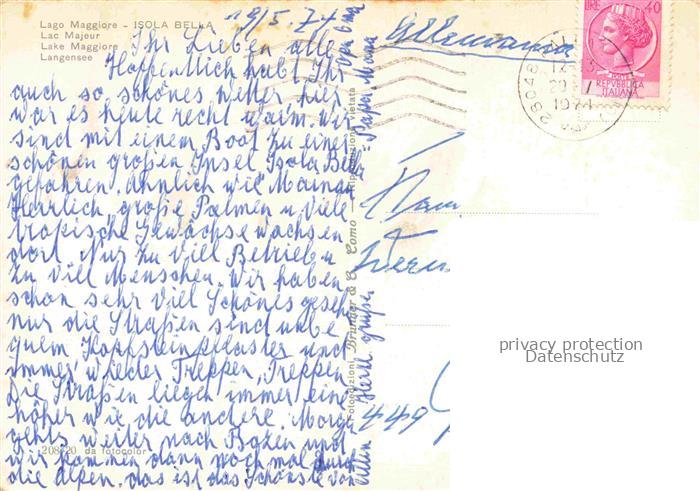 Lago Maggiore - ISOLA BELLA
Lac Majeur
Lake Maggiore
Langensee
19/5.74
Ihr Lieben alle
Hoffentlich habt Ihr
auch so schönes Wetter, hier
war es heute recht warm. Wir
sind mit einem Boot zu einer
schönen großen Insel Isola Bella
gefahren. Ähnlich wie Mainau
Herrlich, große Palmen u. viele
tropische Gewächse wachsen
dort. Nur zu viel Betrieb
zu viel Menschen. Wir haben
schon sehr viel Schönes gesehen
nur die Straßen sind unbe
quem Kopfsteinpflaster und
immer wieder Treppen, Treppen
Die Straßen liegen immer eine
höher wie die andere. Morgen
gehts weiter nach Bozen und
wir kommen dann noch mal durch
die Alpen, das ist das Schönste von
allem Herzl. Grüße
Papa Mama
Opa Oma
208/20 da fotocolor
Fotoedizioni Brunner & C. Como - Riproduzione vietata
Allemania
LIRE 40
REPVBBLICA
ITALIANA
28048
1974
449
privacy protection
Datenschutz